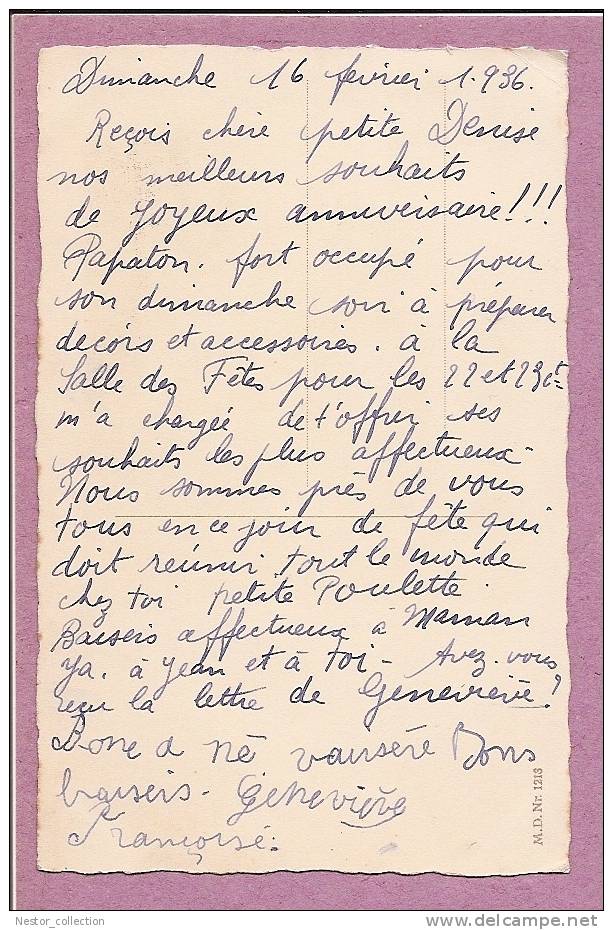 Dimanche 16 février 1.936.
Reçois chère petite Denise
nos meilleurs souhaits
de joyeux anniversaire!!!
Papaton. fort occupé pour
son dimanche soir à préparer
décors et accessoires. à la
Salle des Fêtes pour les 22 et 23 ct
m'a chargée de t'offrir ses
souhaits les plus affectueux-
Nous sommes près de vous
tous en ce jour de fête qui
doit réunir tout le monde
chez toi petite Poulette.
Baisers affectueux à Maman
Ya. à Jean et à toi- Avez-vous
reçu la lettre de Geneviève?
Bone a né vairsère Bons
baisers. Geneviève
Françoise.
M.D. Nr. 1213
Nestor_collection
delcampe.net